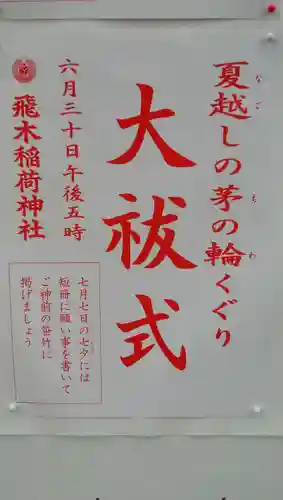 夏越しの茅の輪くぐり
なご
ちわ
大祓式
六月三十日午後五時
飛木稲荷神社
七月七日の七夕には
短冊に願い事を書いて
ご神前の笹竹に
掲げましょう